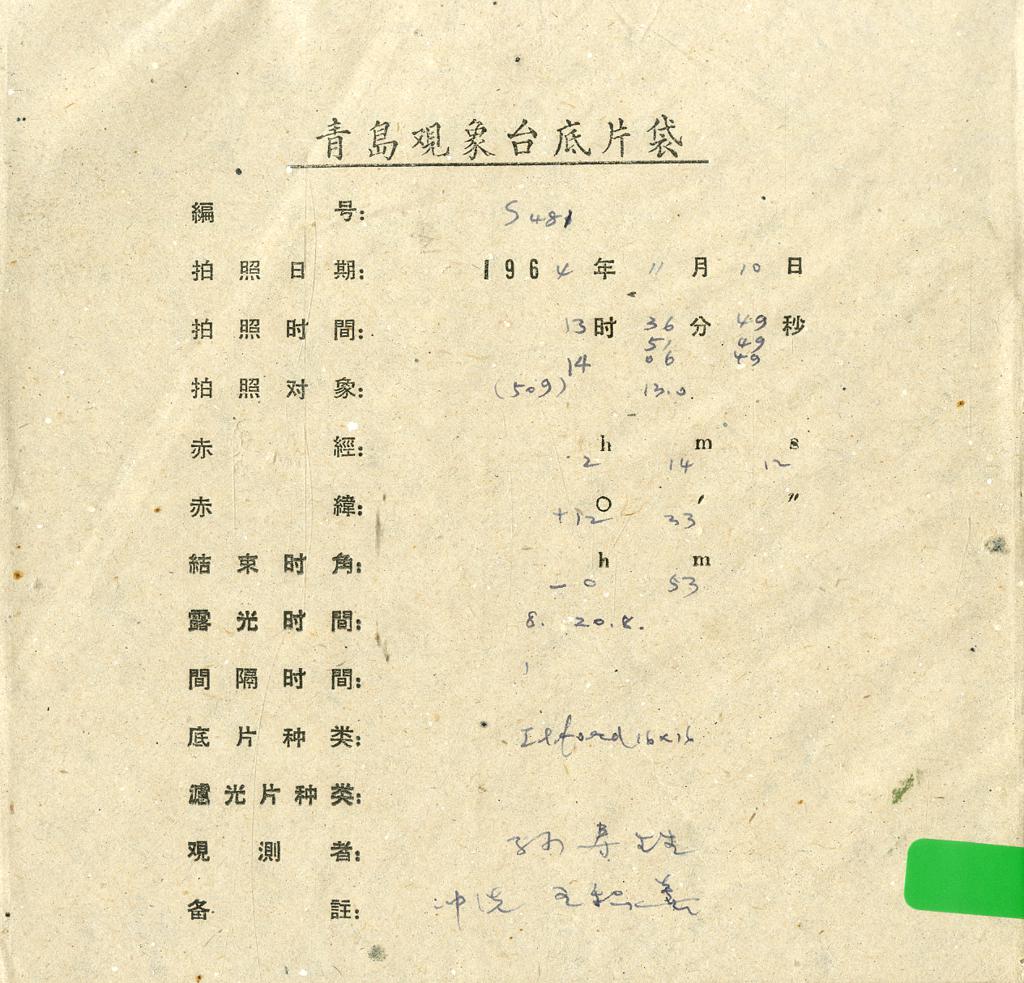 青島观象台底片袋
編号: S481
拍照日期: 1964年11月10日
拍照时間: 13时36分49秒
51 49
14 06 49
拍照对象: (509) 13.0
赤經: 2h 14m 12s
赤緯: +12° 33′ ″
結束时角: -0h 53m
露光时間: 8. 20. 8.
間隔时間: 1
底片种类: Ilford 16x16
濾光片种类:
观測者: 孙寿
备註: 冲洗 王